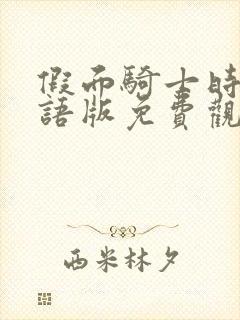 假面騎士時
語版免費觀
西米林夕